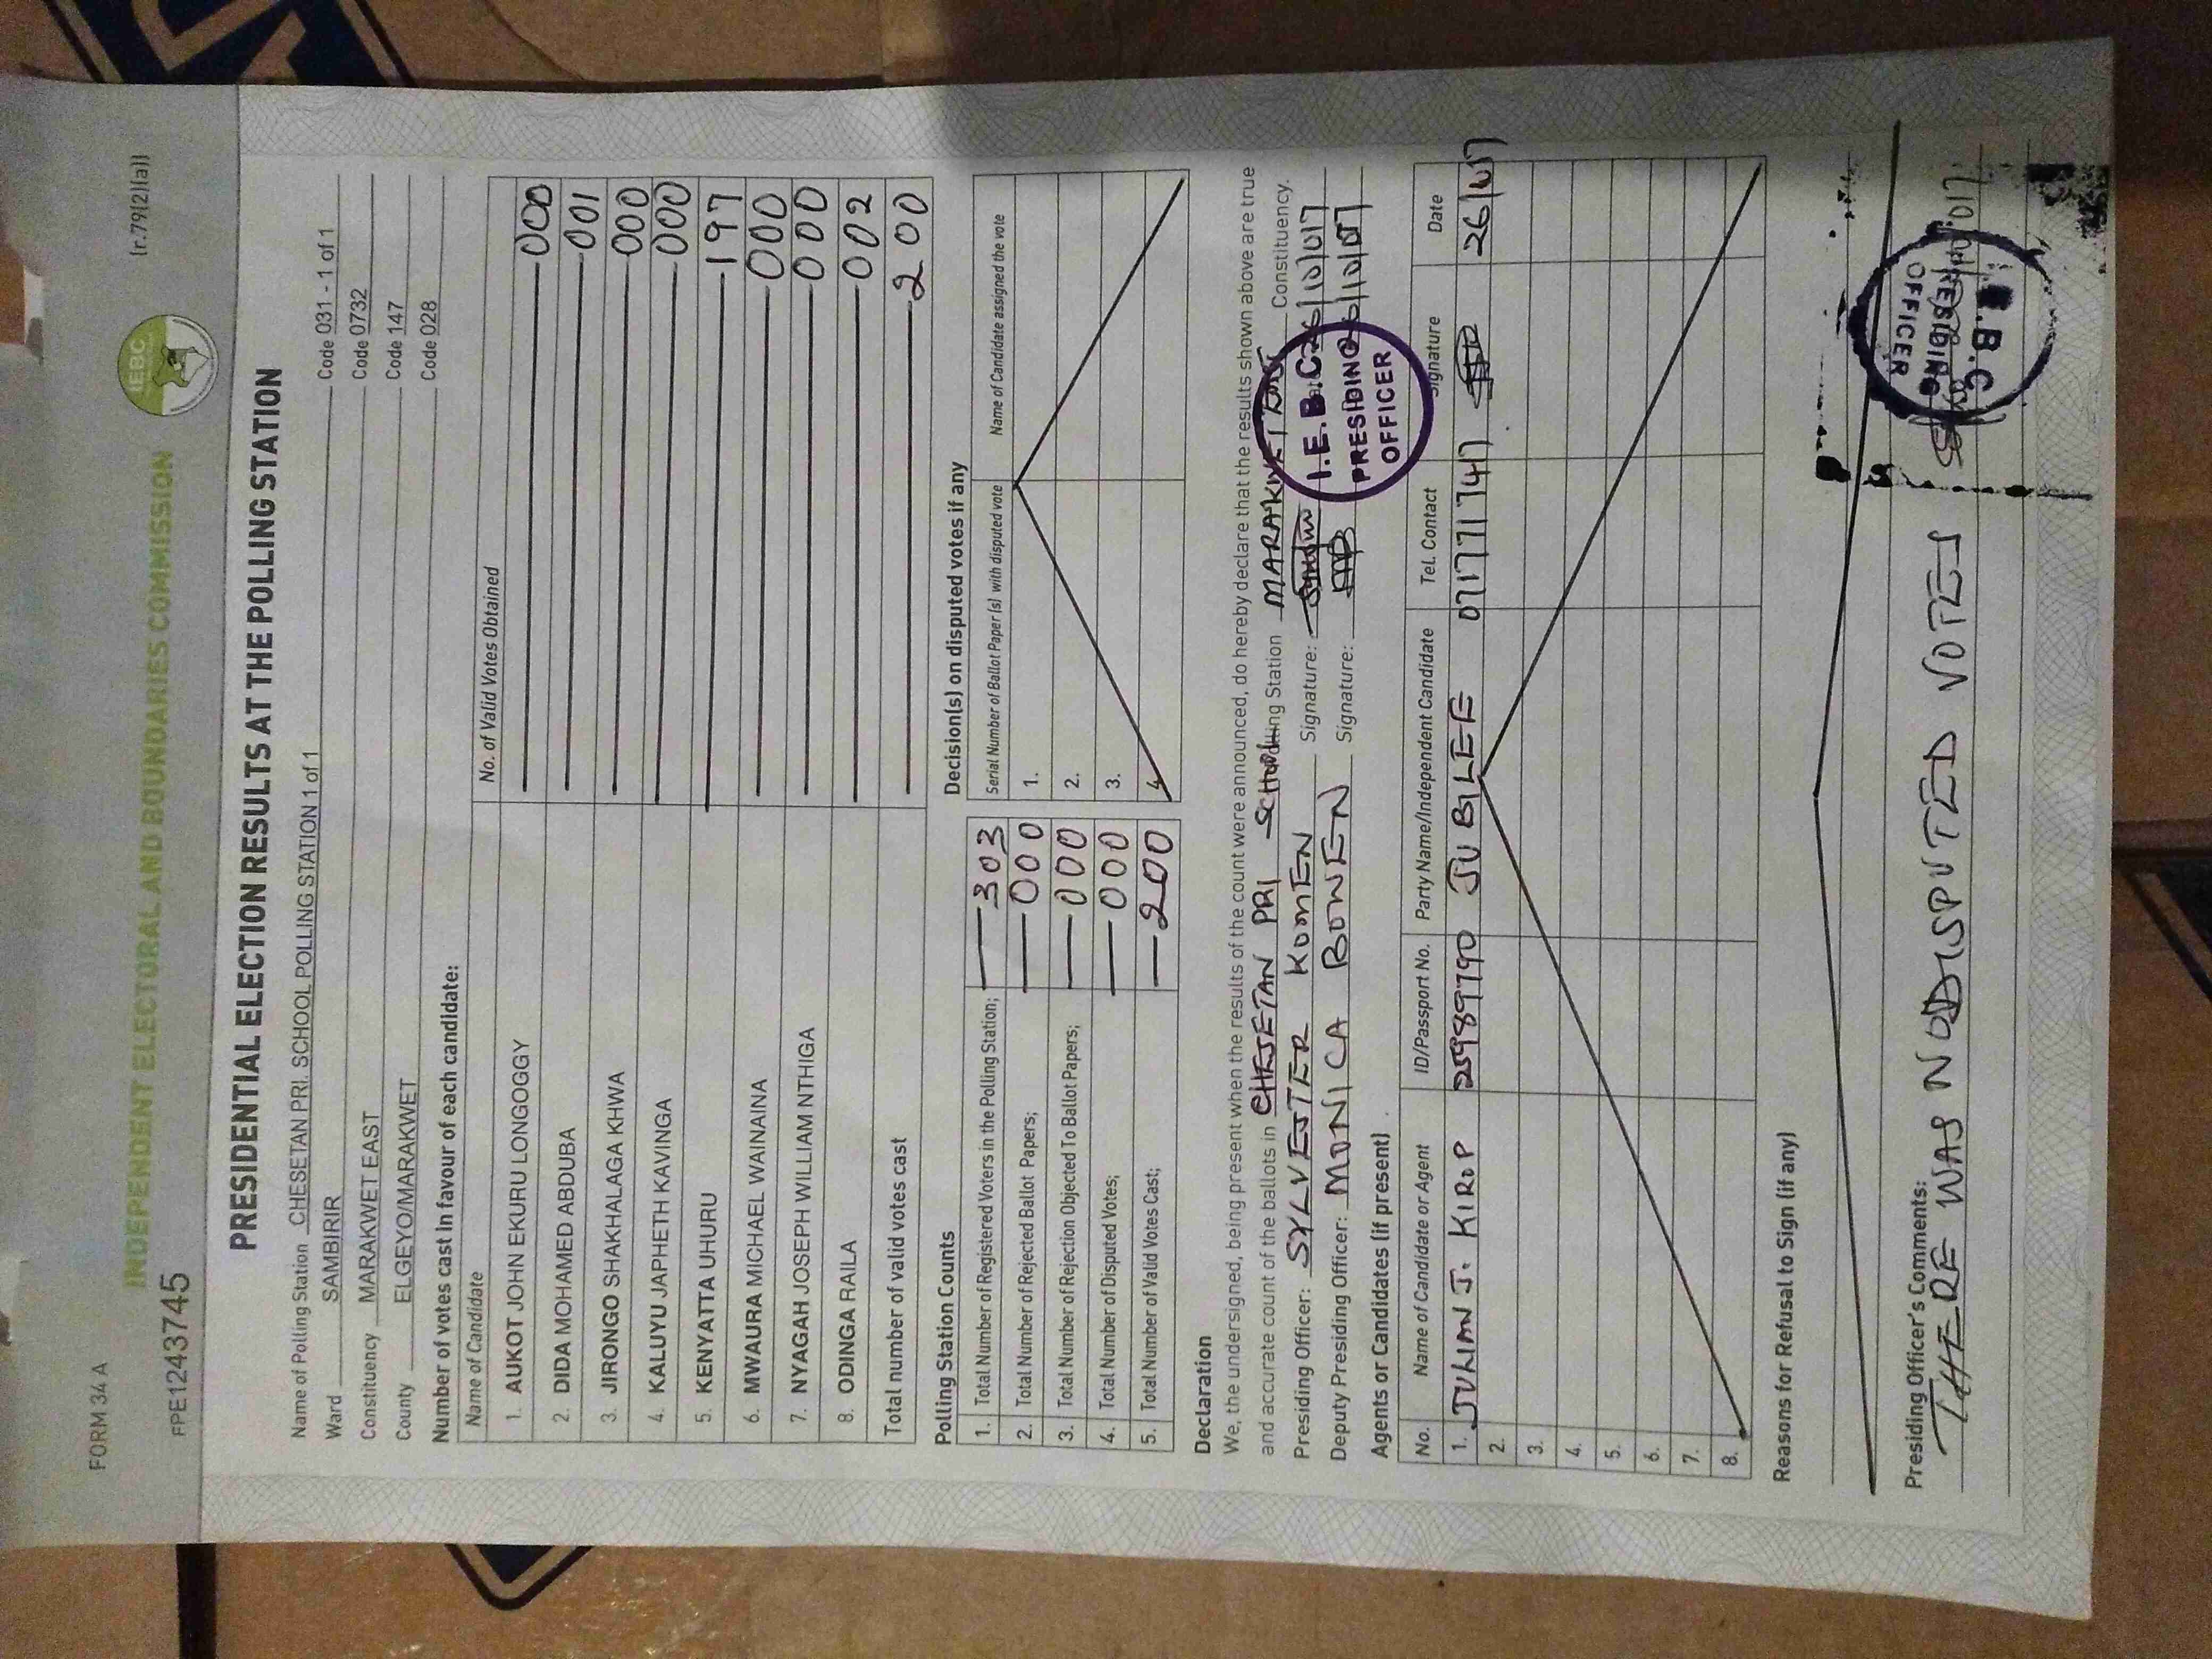 FORM 34 A
(r.79(2)(a))
IEBC
INDEPENDENT ELECTORAL AND BOUNDARIES COMMISSION
FPE1243745
PRESIDENTIAL ELECTION RESULTS AT THE POLLING STATION
Name of Polling Station CHESETAN PRI. SCHOOL POLLING STATION 1 of 1 Code 031 - 1 of 1
Ward SAMBIRIR Code 0732
Constituency MARAKWET EAST Code 147
County ELGEYO/MARAKWET Code 028
Number of votes cast in favour of each candidate:
Name of Candidate No. of Valid Votes Obtained
1. AUKOT JOHN EKURU LONGOGGY 000
2. DIDA MOHAMED ABDUBA 001
3. JIRONGO SHAKHALAGA KHWA 000
4. KALUYU JAPHETH KAVINGA 000
5. KENYATTA UHURU 197
6. MWAURA MICHAEL WAINAINA 000
7. NYAGAH JOSEPH WILLIAM NTHIGA 000
8. ODINGA RAILA 002
Total number of valid votes cast 200
Polling Station Counts
1. Total Number of Registered Voters in the Polling Station; 303
2. Total Number of Rejected Ballot Papers; 000
3. Total Number of Rejection Objected To Ballot Papers; 000
4. Total Number of Disputed Votes; 000
5. Total Number of Valid Votes Cast; 200
Decision(s) on disputed votes if any
Serial Number of Ballot Paper (s) with disputed vote Name of Candidate assigned the vote
1.
2.
3.
4.
Declaration
We, the undersigned, being present when the results of the count were announced, do hereby declare that the results shown above are true
and accurate count of the ballots in CHESETAN PRI SCHOOL Polling Station MARAKWET EAST Constituency.
Presiding Officer: SYLVESTER KOMEN Signature: 26/10/017
Deputy Presiding Officer: MONICA BOWEN Signature:
I.E.B.C
PRESIDING
OFFICER
Agents or Candidates (if present)
No. Name of Candidate or Agent ID/Passport No. Party Name/Independent Candidate Tel. Contact Signature Date
1. JULIAN J. KIROP 25989790 JUBILEE 0717711747
2.
3.
4.
5.
6.
7.
8.
Reasons for Refusal to Sign (if any)
Presiding Officer's Comments:
THERE WAS NO DISPUTED VOTES
I.E.B.C
PRESIDING
OFFICER